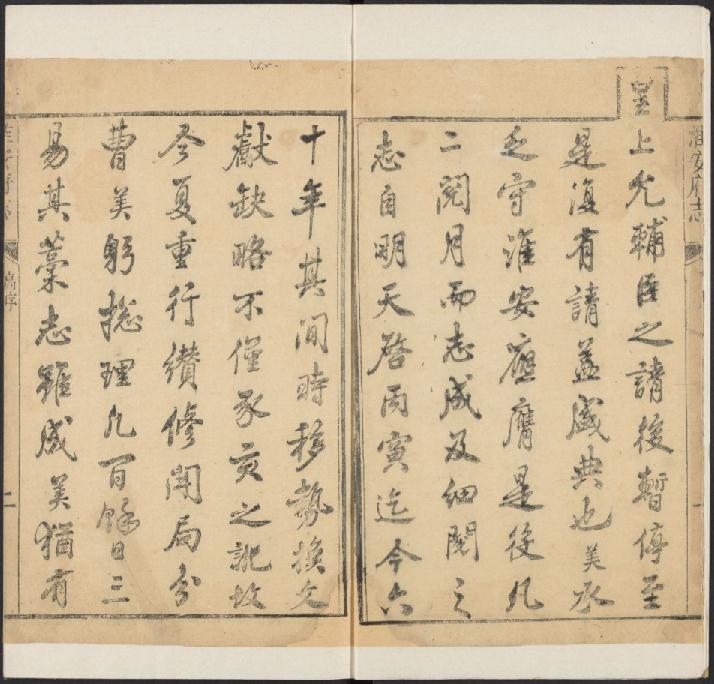 皇上允輔臣之請後暫停至
是復有請葢盛典也美承
乏守淮安應膺是役凡
二閱月而志成及細閱之
志自明天啓丙寅迄今六
十年其間時移勢換文
獻缺略不僅豕亥之訛故
今夏重行纉修開局分
曹美躬摠理凡百餘日三
易其藁志雖成美猶有
淮安府志
二